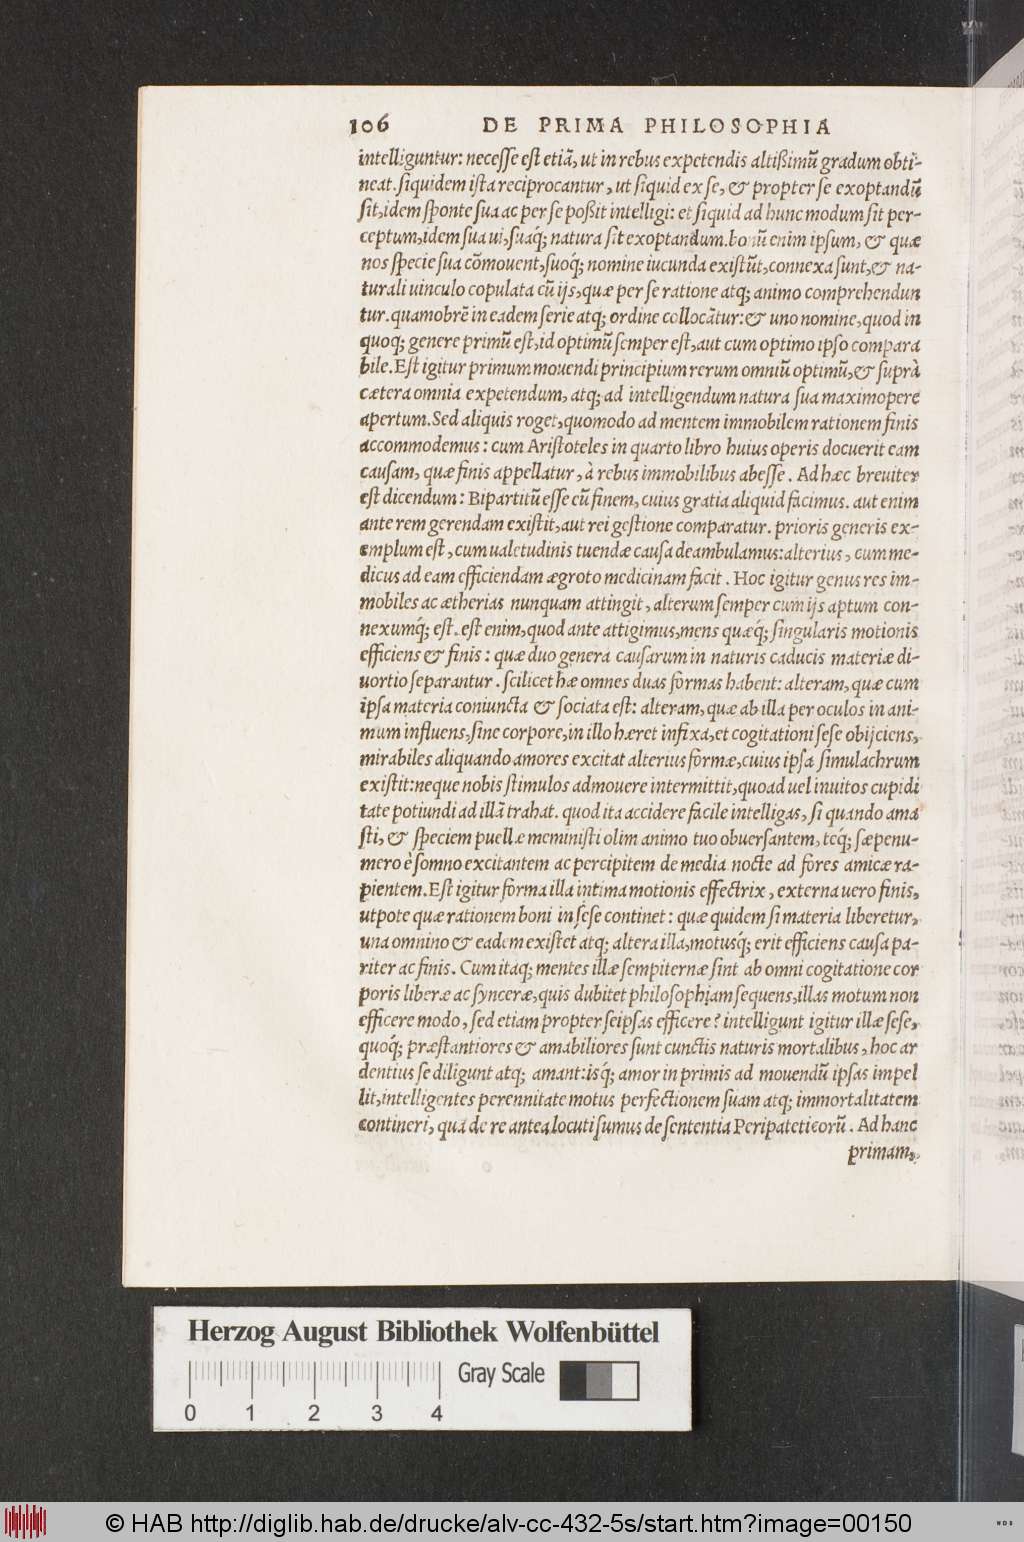 106 DE PRIMA PHILOSOPHIA
intelliguntur: necesse est etiã, ut in rebus expetendis altißimũ gradum obti-
neat. siquidem ista reciprocantur, ut siquid ex se, & propter se exoptandũ
sit, idem sponte sua ac per se poßit intelligi: et siquid ad hunc modum sit per-
ceptum, idem sua ui, suaq́; natura sit exoptandum. bonũ enim ipsum, & quæ
nos specie sua cõmouent, suoq́; nomine iucunda existũt, connexa sunt, & na-
turali uinculo copulata cũ ijs, quæ per se ratione atq; animo comprehendun
tur. quamobrẽ in eadem serie atq; ordine collocãtur: & uno nomine, quod in
quoq; genere primũ est, id optimũ semper est, aut cum optimo ipso compara
bile. Est igitur primum mouendi principium rerum omniũ optimũ, & suprà
cætera omnia expetendum, atq; ad intelligendum natura sua maximopere
apertum. Sed aliquis roget, quomodo ad mentem immobilem rationem finis
accommodemus: cum Aristoteles in quarto libro huius operis docuerit eam
causam, quæ finis appellatur, à rebus immobilibus abesse. Ad hæc breuiter
est dicendum: Bipartitũ esse eũ finem, cuius gratia aliquid facimus. aut enim
ante rem gerendam existit, aut rei gestione comparatur. prioris generis ex-
emplum est, cum ualetudinis tuendæ causa deambulamus: alterius, cum me-
dicus ad eam efficiendam ægroto medicinam facit. Hoc igitur genus res im-
mobiles ac ætherias nunquam attingit, alterum semper cum ijs aptum con-
nexumq́; est. est enim, quod ante attigimus, mens quæq́; singularis motionis
efficiens & finis: quæ duo genera causarum in naturis caducis materiæ di-
uortio separantur. scilicet hæ omnes duas formas habent: alteram, quæ cum
ipsa materia coniuncta & sociata est: alteram, quæ ab illa per oculos in ani-
mum influens, sine corpore, in illo hæret infixa, et cogitationi sese obijciens,
mirabiles aliquando amores excitat alterius formæ, cuius ipsa simulachrum
existit: neque nobis stimulos admouere intermittit, quoad uel inuitos cupidi
tate potiundi ad illã trahat. quod ita accidere facile intelligas, si quando ama
sti, & speciem puellæ meministi olim animo tuo obuersantem, teq́; sæpenu-
mero è somno excitantem ac percipitem de media nocte ad fores amicæ ra-
pientem. Est igitur forma illa intima motionis effectrix, externa uero finis,
utpote quæ rationem boni in sese continet: quæ quidem si materia liberetur,
una omnino & eadem existet atq; altera illa, motusq́; erit efficiens causa pa-
riter ac finis. Cum itaq; mentes illæ sempiternæ sint ab omni cogitatione cor
poris liberæ ac synceræ, quis dubitet philosophiam sequens, illas motum non
efficere modo, sed etiam propter seipsas efficere? intelligunt igitur illæ sese,
quoq́; præstantiores & amabiliores sunt cunctis naturis mortalibus, hoc ar
dentius se diligunt atq; amant: isq́; amor in primis ad mouendũ ipsas impel
lit, intelligentes perennitate motus perfectionem suam atq; immortalitatem
contineri, qua de re antea locuti sumus de sententia Peripateticorũ. Ad hanc
primam,
Herzog August Bibliothek Wolfenbüttel
Gray Scale
0 1 2 3 4
© HAB http://diglib.hab.de/drucke/alv-cc-432-5s/start.htm?image=00150